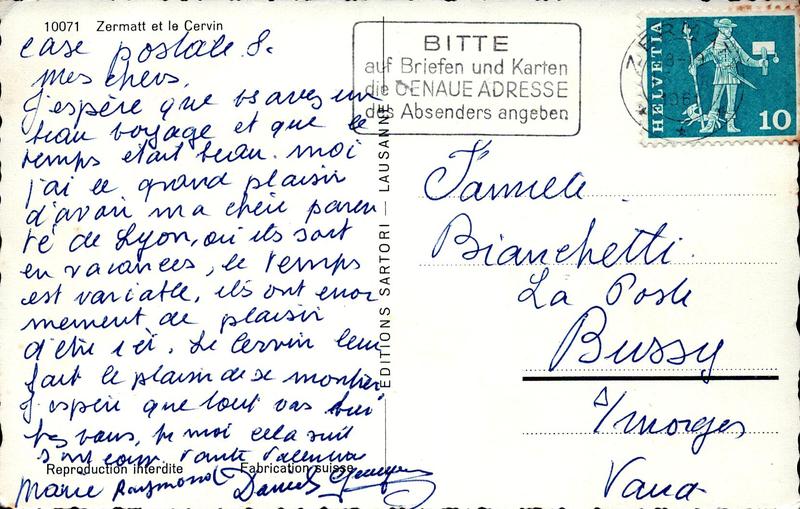 10071 Zermatt et le Cervin
case postale 8.
mes chers,
J'espère que vs avez un
beau voyage et que le
temps était beau. moi
j'ai le grand plaisir
d'avoir ma chère paren
té de Lyon, où ils sont
en vacances, le temps
est variable, ils ont enor
mement de plaisir
d'être ici. Le Cervin leur
fait le plaisir de se montrer
J'espère que tout vas
vous, moi cela suit
Tante Valentine
Reproduction interdite Fabrication suisse
Marie Raymond Daniel
EDITIONS SARTORI — LAUSANNE
BITTE
auf Briefen und Karten
die GENAUE ADRESSE
des Absenders angeben
HELVETIA
10
Famille
Bianchetti
La Poste
Bussy
s/morges
Vaud